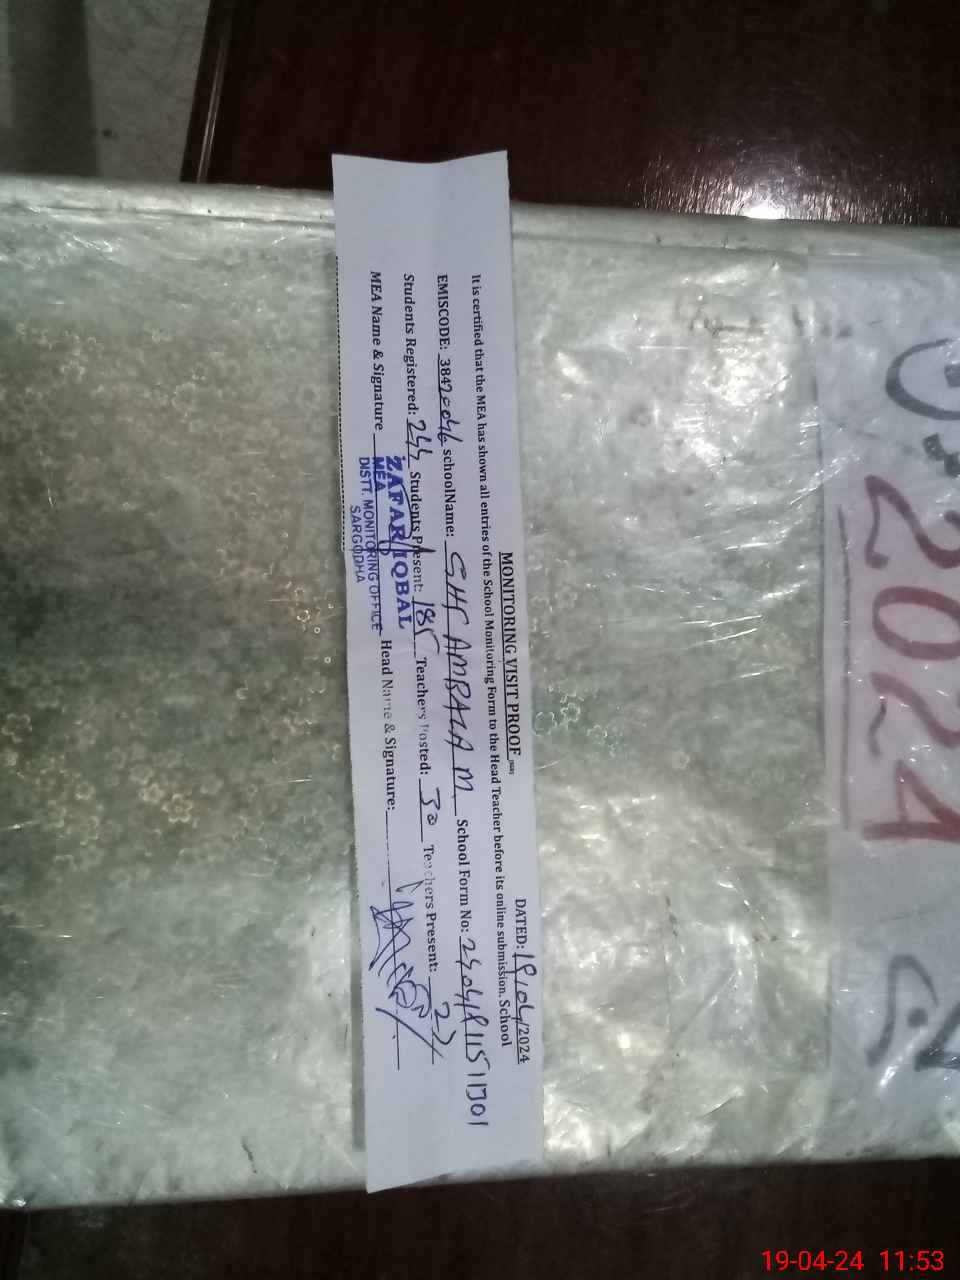 MONITORING VISIT PROOF
DATED: 19/04/2024
It is certified that the MEA has shown all entries of the School Monitoring Form to the Head Teacher before its online submission. School
EMISCODE: 38420046 schoolName: GHS AMBALA M School Form No:
Students Registered: 244 Students Present: 185 Teachers Posted: 30 Teachers Present: 27
MEA Name & Signature Head Name & Signature:
ZAFAR IQBAL
MEA
DISTT. MONITORING OFFICE
SARGODHA
2024
19-04-24 11:53